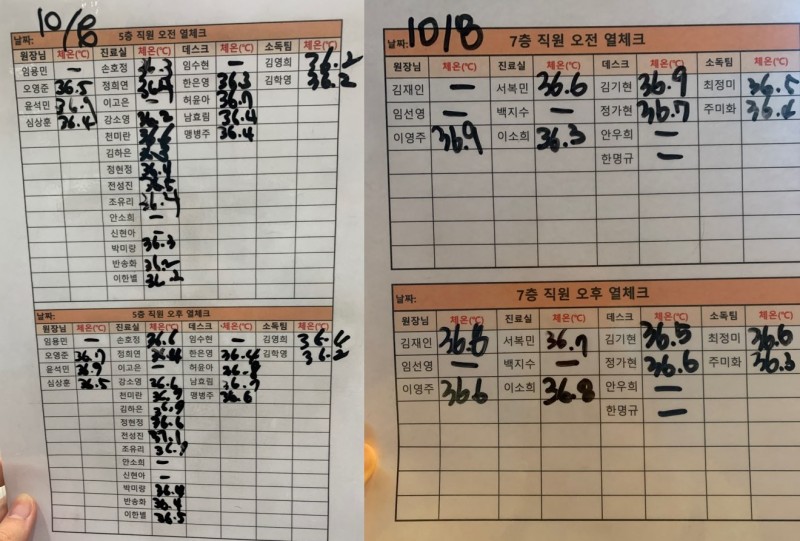 10/8
날짜: 5층 직원 오전 열체크
원장님 체온(℃) 진료실 체온(℃) 데스크 체온(℃) 소독팀 체온(℃)
임용민 — 손호정 36.3 임수현 — 김영희 36.2
오영준 36.5 정희연 한은영 36.3 김학영 36.2
윤석민 36.7 이고은 — 허윤아 36.7
심상훈 36.4 강소영 36.2 남효림 36.4
전미란 36.6 맹병주 36.4
김하은
정현정 36.4
전성진 36.5
조유리 36.4
안소희 —
신현아 —
박미랑 36.3
반송화 36.2
이한별 36.2
5층 직원 오후 열체크
원장님 체온(℃) 진료실 체온(℃) 데스크 체온(℃) 소독팀 체온(℃)
임용민 — 손호정 36.6 임수현 — 김영희 36.4
오영준 36.7 정희연 36.4 한은영 36.4 김학영 36.2
윤석민 36.9 이고은 — 허윤아 36.8
심상훈 36.5 강소영 36.6 남효림 36.7
전미란 36.9 맹병주 36.6
김하은 36.9
정현정 36.6
전성진 37.1
조유리 36.9
안소희 —
신현아 —
박미랑 36.4
반송화 36.4
이한별 36.5
10/8
날짜: 7층 직원 오전 열체크
원장님 체온(℃) 진료실 체온(℃) 데스크 체온(℃) 소독팀 체온(℃)
김재인 — 서복민 36.6 김기현 36.9 최정미 36.5
임선영 — 백지수 — 정가현 36.7 주미화 36.6
이영주 36.9 이소희 36.3 안우희 —
한명규 —
날짜: 7층 직원 오후 열체크
원장님 체온(℃) 진료실 체온(℃) 데스크 체온(℃) 소독팀 체온(℃)
김재인 36.6 서복민 36.7 김기현 36.5 최정미 36.6
임선영 — 백지수 — 정가현 36.6 주미화 36.3
이영주 36.6 이소희 36.8 안우희 —
한명규 —